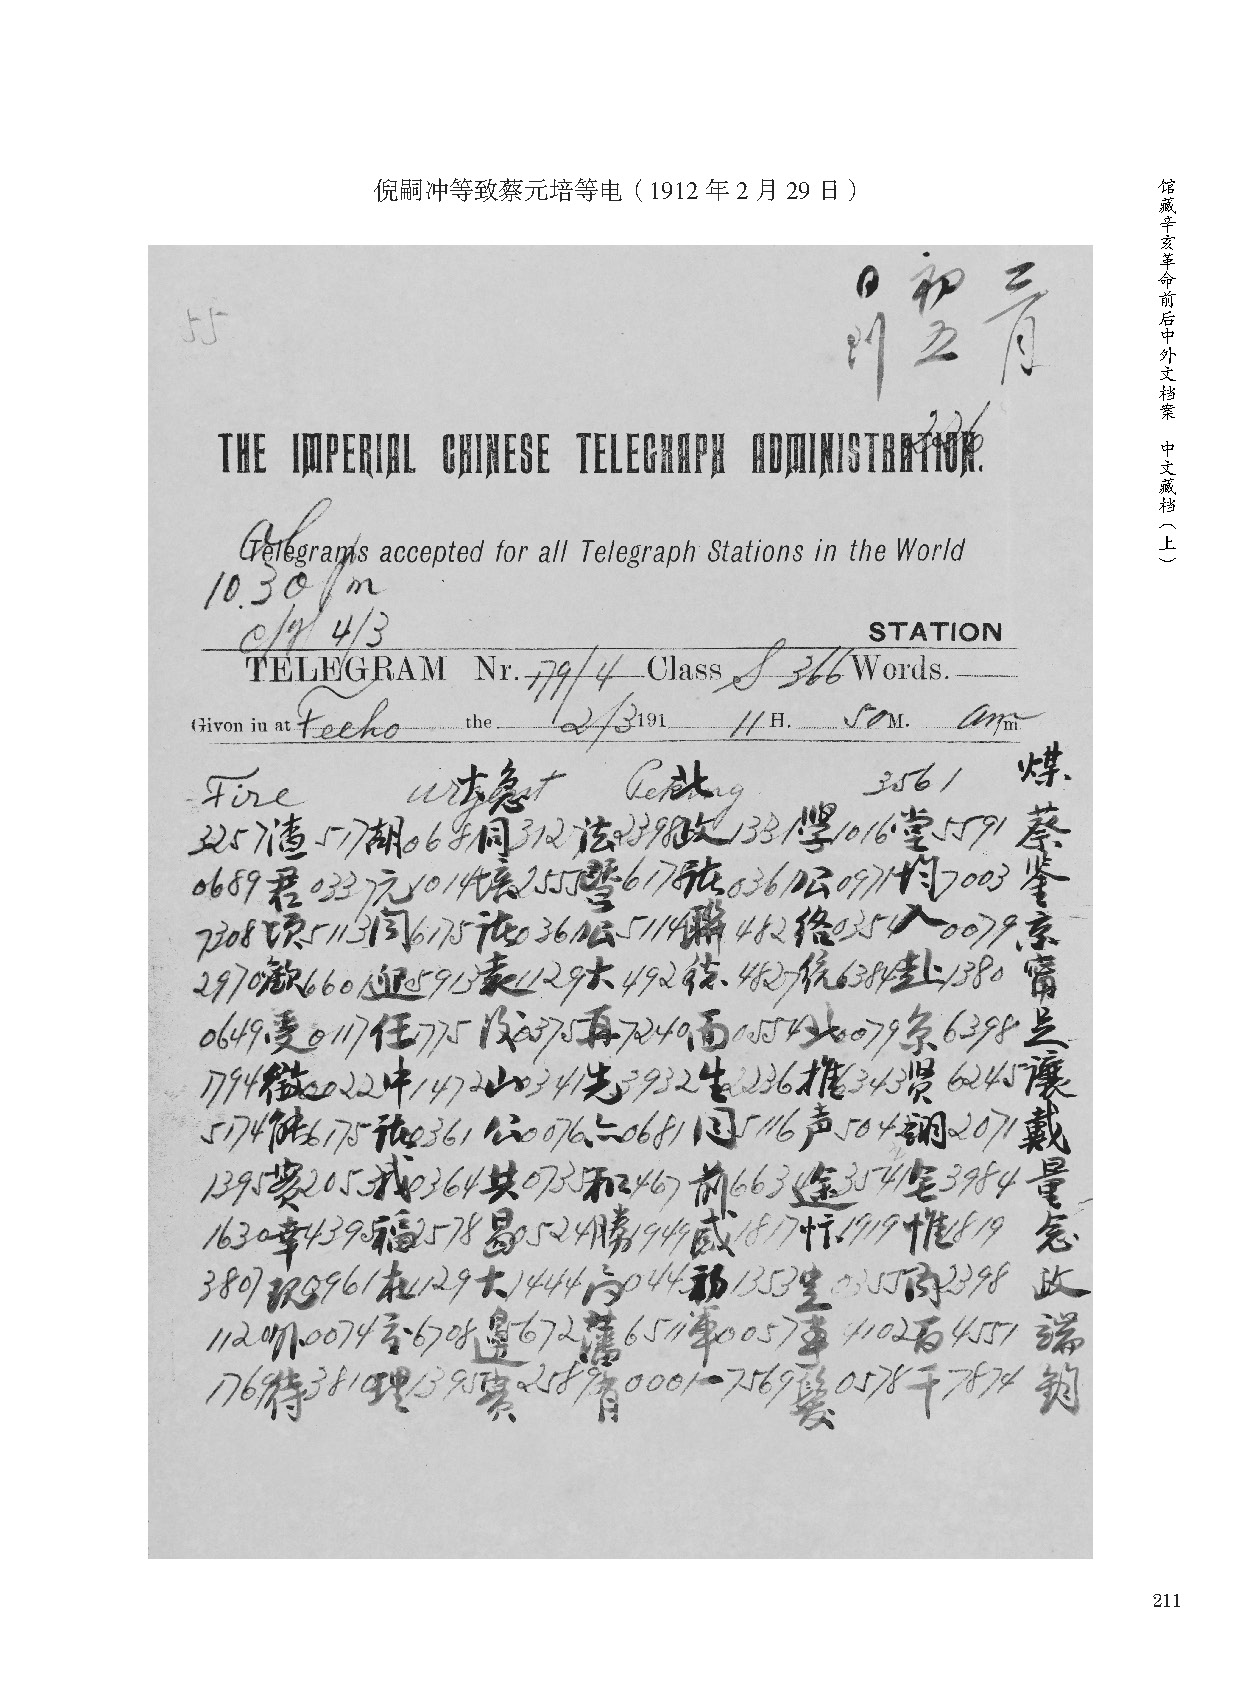 倪嗣冲等致蔡元培等电（1912 年 2 月 29 日）
馆藏辛亥革命前后中外文档案 中文藏档（上）
55
二月
初五
日
到
THE IMPERIAL CHINESE TELEGRAPH ADMINISTRATION.
Telegrams accepted for all Telegraph Stations in the World
10.30 pm
4/3
STATION
TELEGRAM Nr. 179/4 Class S 366 Words.
Givon in at the 2/3 191 11 H. 50 M. am m
Fire urgent 大急 Peking 北 3561 煤
3257 渣 517 胡 0681 同 3127 法 2398 政 1331 學 1016 堂 5591 蔡
0689 君 0337 元 1014 培 2555 暨 6178 諸 0361 公 0971 均 7003 鉴
7308 頃 5113 闻 6175 諸 0361 公 5114 聯 482 络 0354 入 0079 京
2970 歡 6601 迎 5913 袁 1129 大 492 總 4827 統 6384 赴 1380 寗
0649 受 0117 任 1775 後 0375 再 7240 面 0554 北 0079 京 6398 足
1794 徵 0022 中 1472 山 0341 先 3932 生 2236 推 6343 贤 6245 讓
5174 能 6175 諸 0361 公 0076 亦 0681 同 5116 声 504 翊 2071 戴
1395 實 2053 我 0364 共 0735 和 467 前 663 途 3541 無 3984 量
1630 幸 4395 福 2578 曷 0524 勝 1949 感 1817 忭 1919 惟 1819 念
3807 現 0961 在 1129 大 1444 局 0445 初 1353 定 0355 内 2398 政
1120 外 0074 交 6708 邊 5672 藩 6511 軍 0057 事 4102 百 4551 端
1769 待 3810 理 1395 實 2589 有 0001 一 7569 髮 0578 千 7874 鈞
211